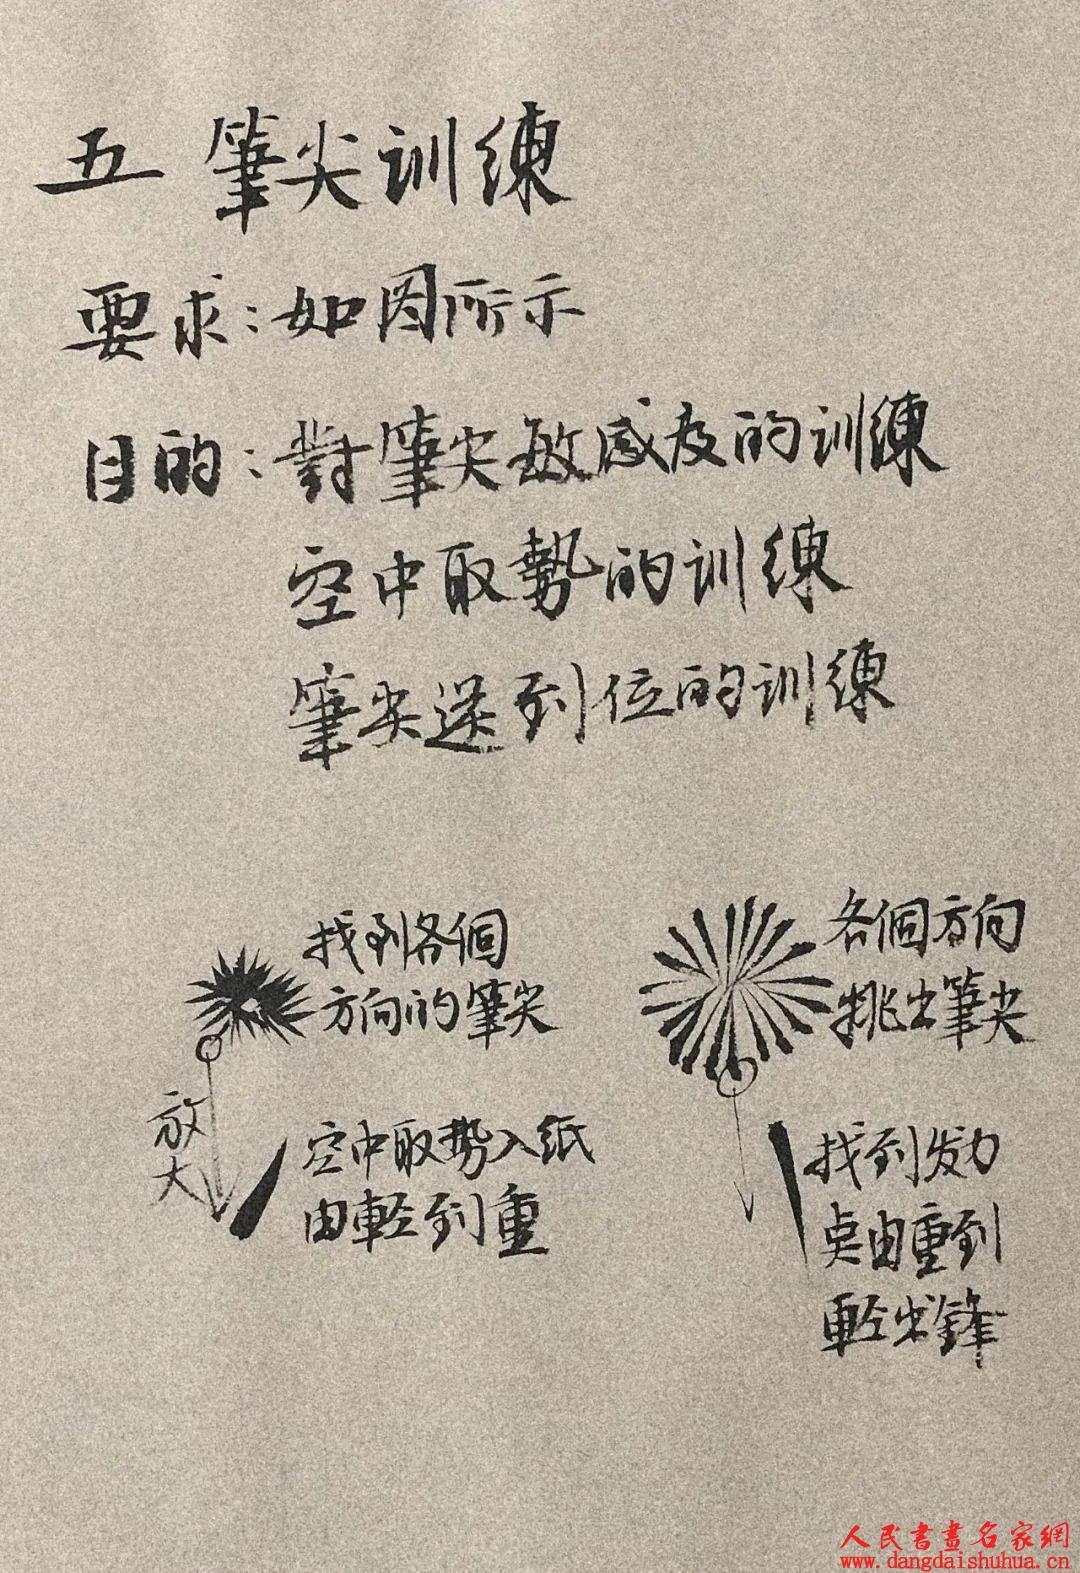 五 筆尖训練
要求：如图所示
目的：對筆尖敏感度的训練
空中取勢的训練
筆尖送到位的训練
找到各個
方向的筆尖
放大
空中取势入纸
由輕到重
各個方向
挑出筆尖
找到发力
点由重到
輕出鋒
人民書畫名家網
www.dangdaishuhua.cn